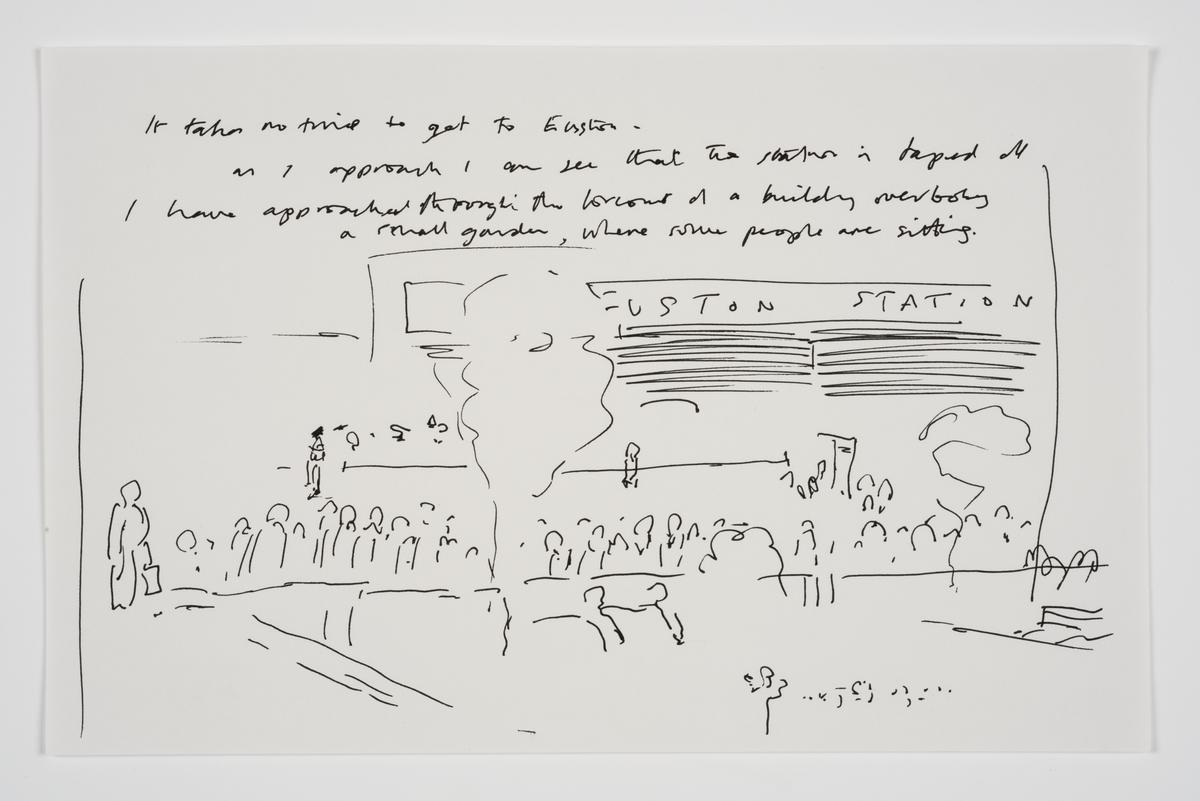 It takes no time to get to Euston.
as I approach I can see that the station is taped off
I have approached through the forecourt of a building overlooking
a small garden, where some people are sitting.
EUSTON STATION